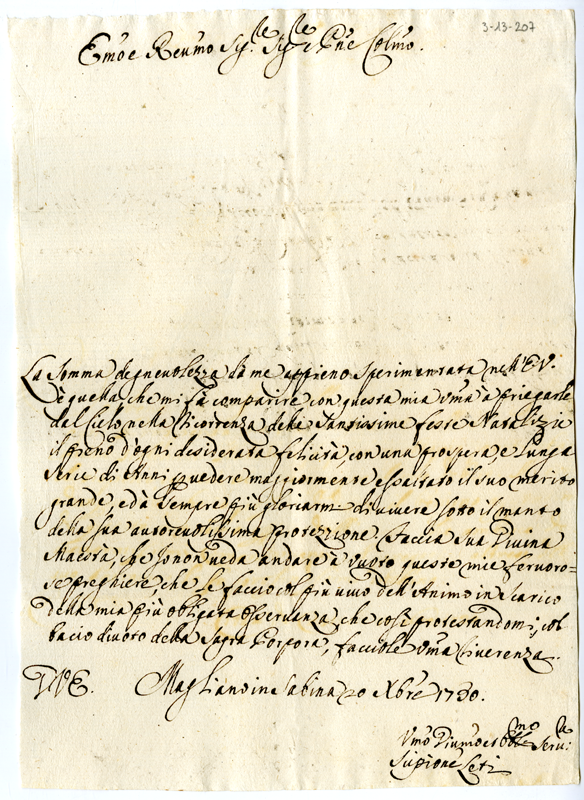 3-13-207
Emo e Reumo Sig.re Sig.re e Pne Colmo.
La Somma degneuolezza da me appieno sperimentata nell'E.V.
è quella, che mi fà comparire con questa mia vma à priegarle
dal Cielo nella ricorrenza delle Santissime feste Natalizie
il pieno d'ogni desiderata felicità, con una prospera, e lunga
serie di Anni, p uedere maggiormente essaltato il suo merito
grande, ed à sempre più gloriarmi di uivere sotto il manto
della sua autoreuolissima protezzione. Faccia Sua Diuina
Maestà, che non ueda andare à Vuoto queste mie feruoro=
se preghiere, che le faccio col più uiuo dell'Animo in scarico
della mia più obligata osseruanza, che così protestandomi, col
bacio diuoto della Sagra Porpora, facciole vma riuerenza.
D V E. Magliano in Sabina 20 Xbre 1730.
Vmo Diumo et Obblmo Seru:
Scipione Leti